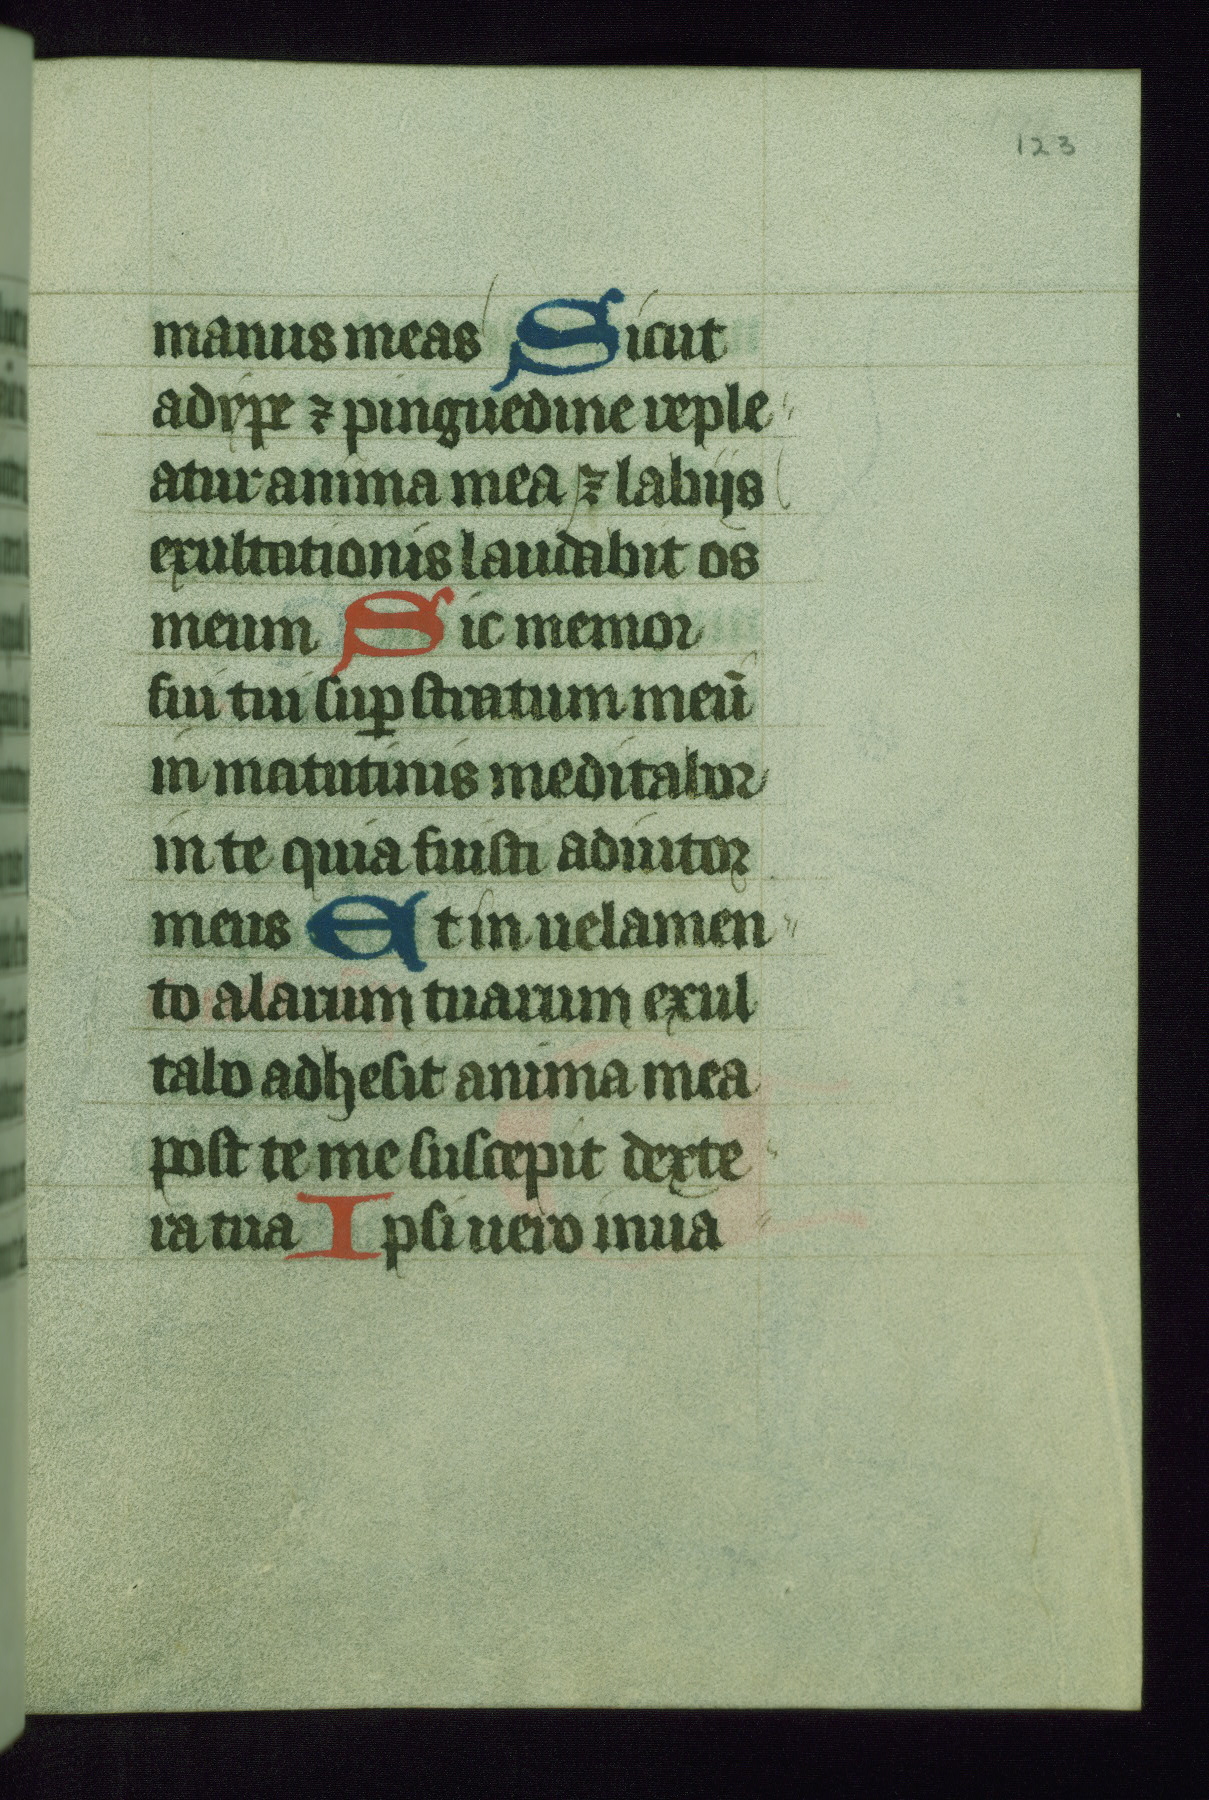 123
manus meas Sicut
adipe ⁊ pinguedine reple
atur anima mea ⁊ labijs
exultationis laudabit os
meum Sic memor
fui tui sup stratum meū
in matutinis meditabor
in te quia fuisti adiutor
meus Et in uelamen
to alarum tuarum exul
tabo adhesit anima mea
post te me suscepit dexte
ra tua Ipsi uero inua